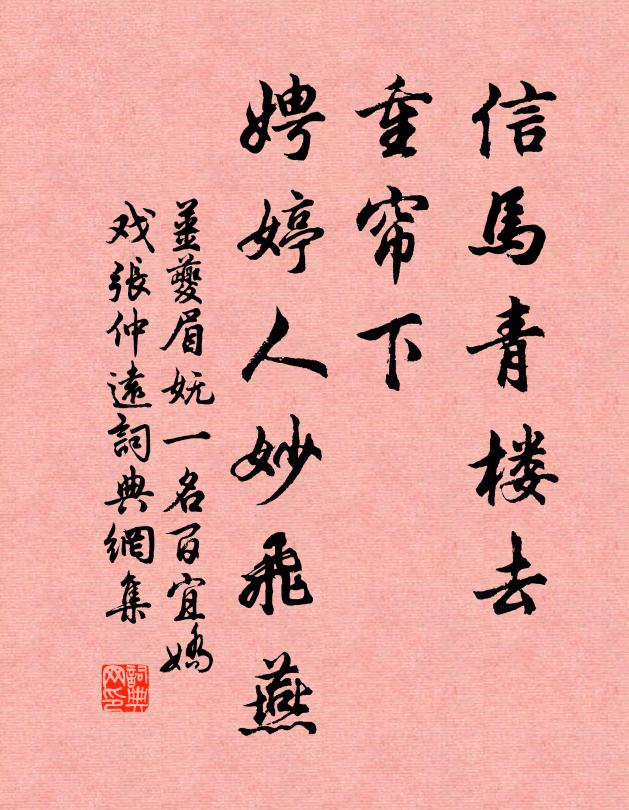 信馬青楼去
重帘下
娉婷人妙飛燕
姜夔眉妩一名百宜嬌
戏張仲遠詞典網集
詞典
网印